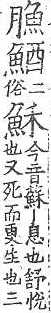 俗二穌今音蘇｜息也舒悅也又死而更生也三